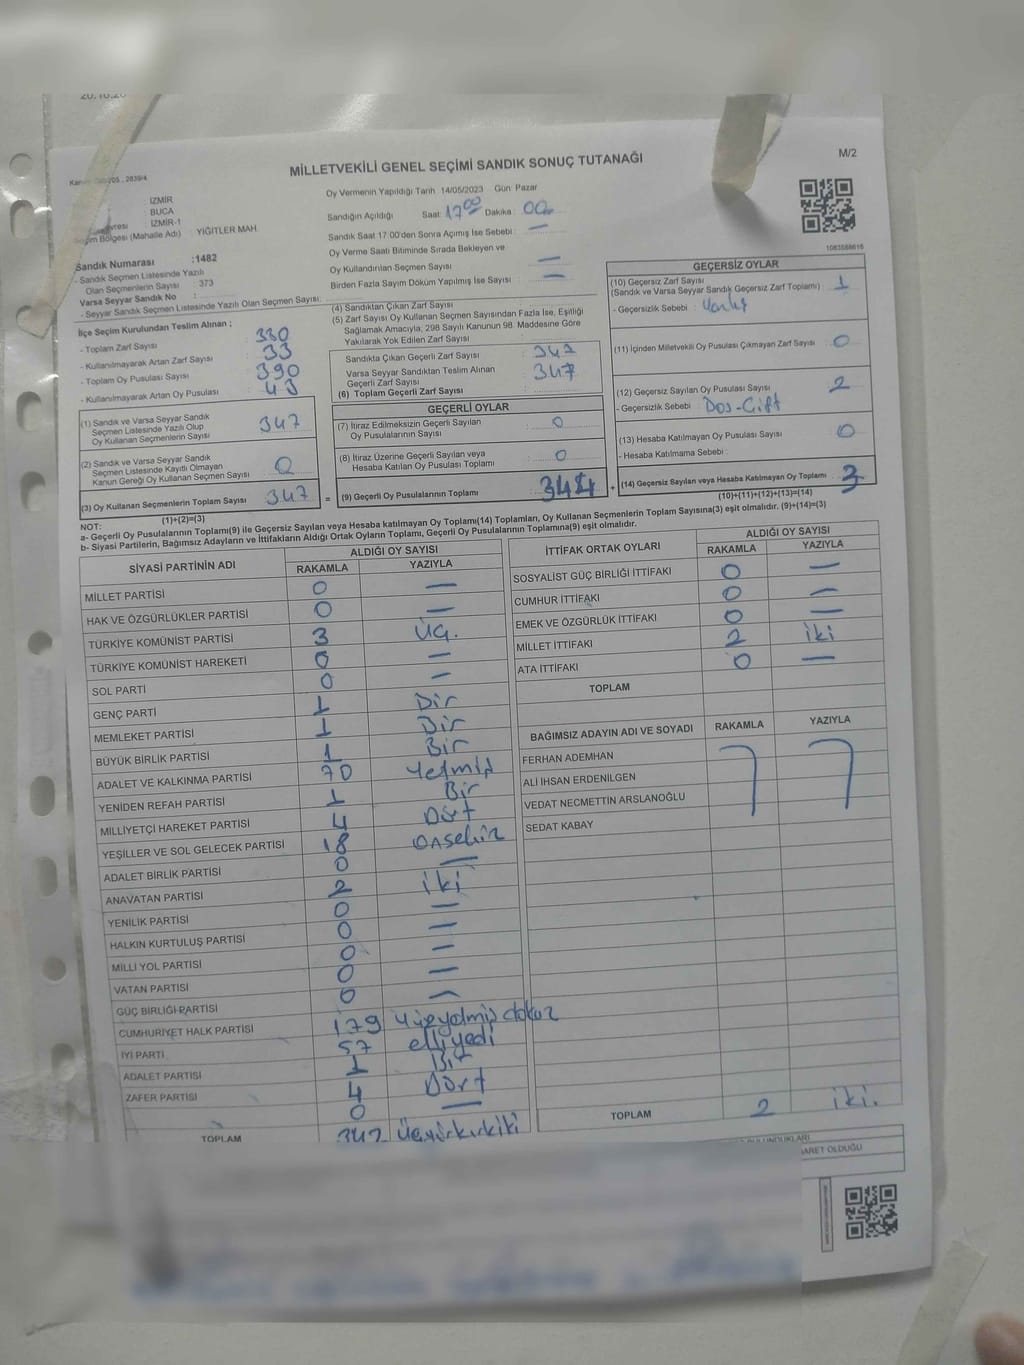 20.10.20
MİLLETVEKİLİ GENEL SEÇİMİ SANDIK SONUÇ TUTANAĞI
M/2
İZMİR
BUCA
İZMİR-1
Seçim Bölgesi (Mahalle Adı) : YİĞİTLER MAH.
Oy Vermenin Yapıldığı Tarih 14/05/2023 Gün: Pazar
Sandığın Açıldığı Saat: 17 00 Dakika : 00
Sandık Saat 17:00'den Sonra Açılmış İse Sebebi : —
Oy Verme Saati Bitiminde Sırada Bekleyen ve
Oy Kullandırılan Seçmen Sayısı —
Birden Fazla Sayım Döküm Yapılmış İse Sayısı —
1083588616
Sandık Numarası : 1482
- Sandık Seçmen Listesinde Yazılı
Olan Seçmenlerin Sayısı : 373
Varsa Seyyar Sandık No :
- Seyyar Sandık Seçmen Listesinde Yazılı Olan Seçmen Sayısı:
İlçe Seçim Kurulundan Teslim Alınan ;
- Toplam Zarf Sayısı : 380
- Kullanılmayarak Artan Zarf Sayısı : 33
- Toplam Oy Pusulası Sayısı : 390
- Kullanılmayarak Artan Oy Pusulası : 43
(1) Sandık ve Varsa Seyyar Sandık
Seçmen Listesinde Yazılı Olup
Oy Kullanan Seçmenlerin Sayısı 347
(2) Sandık ve Varsa Seyyar Sandık
Seçmen Listesinde Kayıtlı Olmayan
Kanun Gereği Oy Kullanan Seçmen Sayısı 0
(3) Oy Kullanan Seçmenlerin Toplam Sayısı 347
(1)+(2)=(3)
(4) Sandıktan Çıkan Zarf Sayısı :
(5) Zarf Sayısı Oy Kullanan Seçmen Sayısından Fazla İse, Eşitliği
Sağlamak Amacıyla, 298 Sayılı Kanunun 98. Maddesine Göre
Yakılarak Yok Edilen Zarf Sayısı :
Sandıkta Çıkan Geçerli Zarf Sayısı : 347
Varsa Seyyar Sandıktan Teslim Alınan
Geçerli Zarf Sayısı : 347
(6) Toplam Geçerli Zarf Sayısı :
GEÇERLİ OYLAR
(7) İtiraz Edilmeksizin Geçerli Sayılan
Oy Pusulalarının Sayısı : 0
(8) İtiraz Üzerine Geçerli Sayılan veya
Hesaba Katılan Oy Pusulası Toplamı : 0
= (9) Geçerli Oy Pusulalarının Toplamı : 344
GEÇERSİZ OYLAR
(10) Geçersiz Zarf Sayısı
(Sandık ve Varsa Seyyar Sandık Geçersiz Zarf Toplamı) : 1
- Geçersizlik Sebebi :
(11) İçinden Milletvekili Oy Pusulası Çıkmayan Zarf Sayısı : 0
(12) Geçersiz Sayılan Oy Pusulası Sayısı : 2
- Geçersizlik Sebebi :
(13) Hesaba Katılmayan Oy Pusulası Sayısı : 0
- Hesaba Katılmama Sebebi :
+ (14) Geçersiz Sayılan veya Hesaba Katılmayan Oy Toplamı : 3
(10)+(11)+(12)+(13)=(14)
NOT:
a- Geçerli Oy Pusulalarının Toplamı(9) ile Geçersiz Sayılan veya Hesaba katılmayan Oy Toplamı(14) Toplamları, Oy Kullanan Seçmenlerin Toplam Sayısına(3) eşit olmalıdır. (9)+(14)=(3)
b- Siyasi Partilerin, Bağımsız Adayların ve İttifakların Aldığı Ortak Oyların Toplamı, Geçerli Oy Pusulalarının Toplamına(9) eşit olmalıdır.
SİYASİ PARTİNİN ADI ALDIĞI OY SAYISI
RAKAMLA YAZIYLA
MİLLET PARTİSİ 0 —
HAK VE ÖZGÜRLÜKLER PARTİSİ 0 —
TÜRKİYE KOMÜNİST PARTİSİ 3 Üç.
TÜRKİYE KOMÜNİST HAREKETİ 0 —
SOL PARTİ 0 —
GENÇ PARTİ 1 Bir
MEMLEKET PARTİSİ 1 Bir
BÜYÜK BİRLİK PARTİSİ 1 Bir
ADALET VE KALKINMA PARTİSİ 70 Yetmiş
YENİDEN REFAH PARTİSİ 1 Bir
MİLLİYETÇİ HAREKET PARTİSİ 4 Dört
YEŞİLLER VE SOL GELECEK PARTİSİ 18 Onsekiz
ADALET BİRLİK PARTİSİ 0 —
ANAVATAN PARTİSİ 2 iki
YENİLİK PARTİSİ 0 —
HALKIN KURTULUŞ PARTİSİ 0 —
MİLLİ YOL PARTİSİ 0 —
VATAN PARTİSİ 0 —
GÜÇ BİRLİĞİ PARTİSİ 0 —
CUMHURİYET HALK PARTİSİ 179 Yüzyetmiş dokuz
İYİ PARTİ 57 elliyedi
ADALET PARTİSİ 1 Bir
ZAFER PARTİSİ 4 Dört
0 —
TOPLAM 342 Üçyüzkırkiki
İTTİFAK ORTAK OYLARI ALDIĞI OY SAYISI
RAKAMLA YAZIYLA
SOSYALİST GÜÇ BİRLİĞİ İTTİFAKI 0 —
CUMHUR İTTİFAKI 0 —
EMEK VE ÖZGÜRLÜK İTTİFAKI 0 —
MİLLET İTTİFAKI 2 iki
ATA İTTİFAKI 0 —
TOPLAM
BAĞIMSIZ ADAYIN ADI VE SOYADI RAKAMLA YAZIYLA
FERHAN ADEMHAN
ALİ İHSAN ERDENİLGEN
VEDAT NECMETTİN ARSLANOĞLU
SEDAT KABAY
TOPLAM 2 iki.
BULUNDUKLARI
ARET OLDUĞU